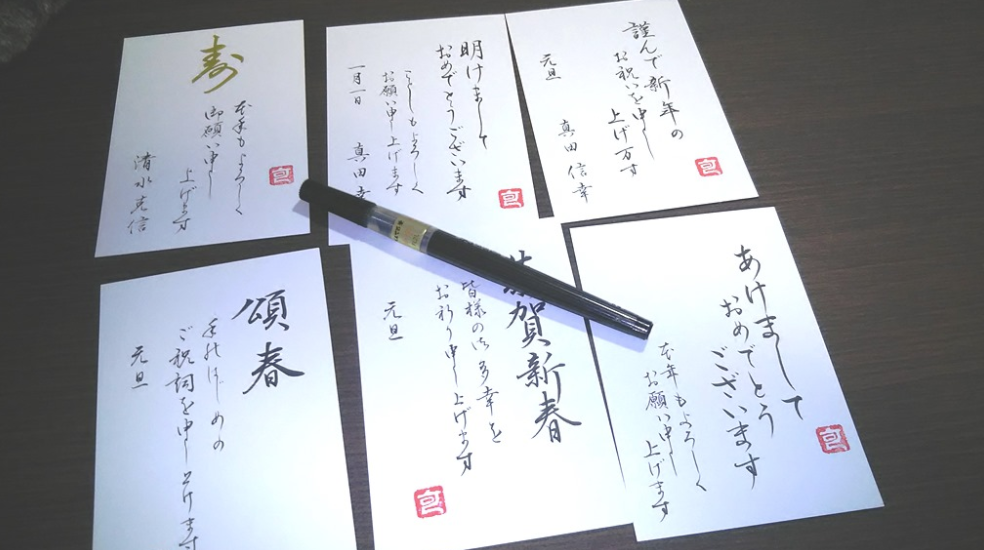 寿
本年もよろしく
御願い申し
上げます
清水光信
明けまして
おめでとうございます
ことしもよろしく
お願い申し上げます
一月一日
真田幸
謹んで新年の
お祝いを申し
上げ万す
元旦
真田信幸
頌春
年のはじめの
ご祝詞を申し上げます
元旦
恭賀新春
皆様の御多幸を
お祈り申し上げます
元旦
あけまして
おめでとう
ございます
本年もよろしく
お願い申し
上げます